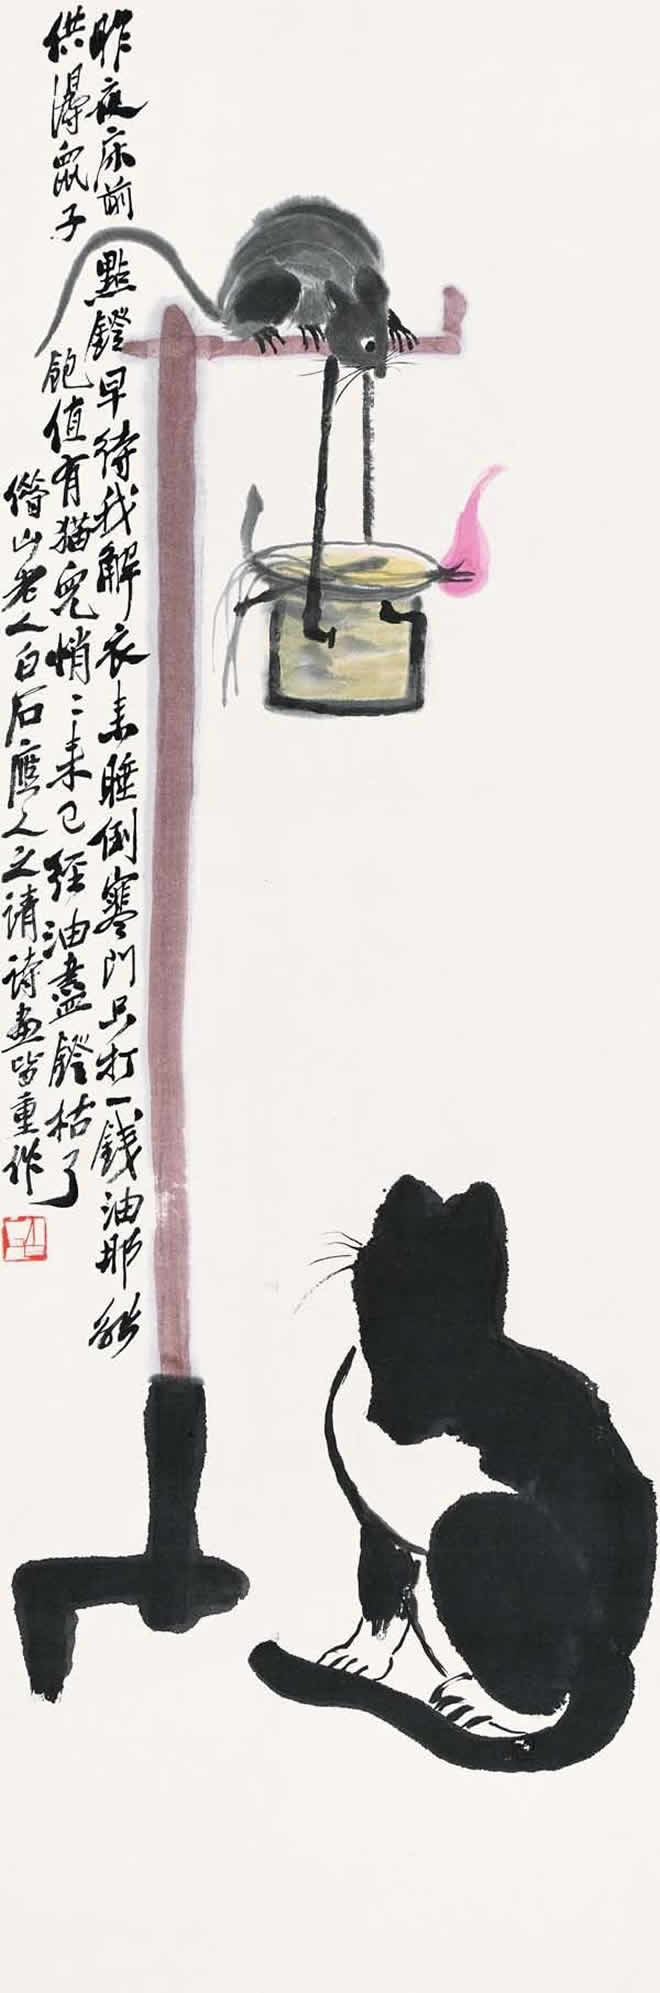 昨夜床前點鐙早待我解衣來睡倒寒門只打一錢油那能
供得鼠子飽值有貓兒悄〻來已經油盡鐙枯了
借山老人白石應人之請詩畫皆重作